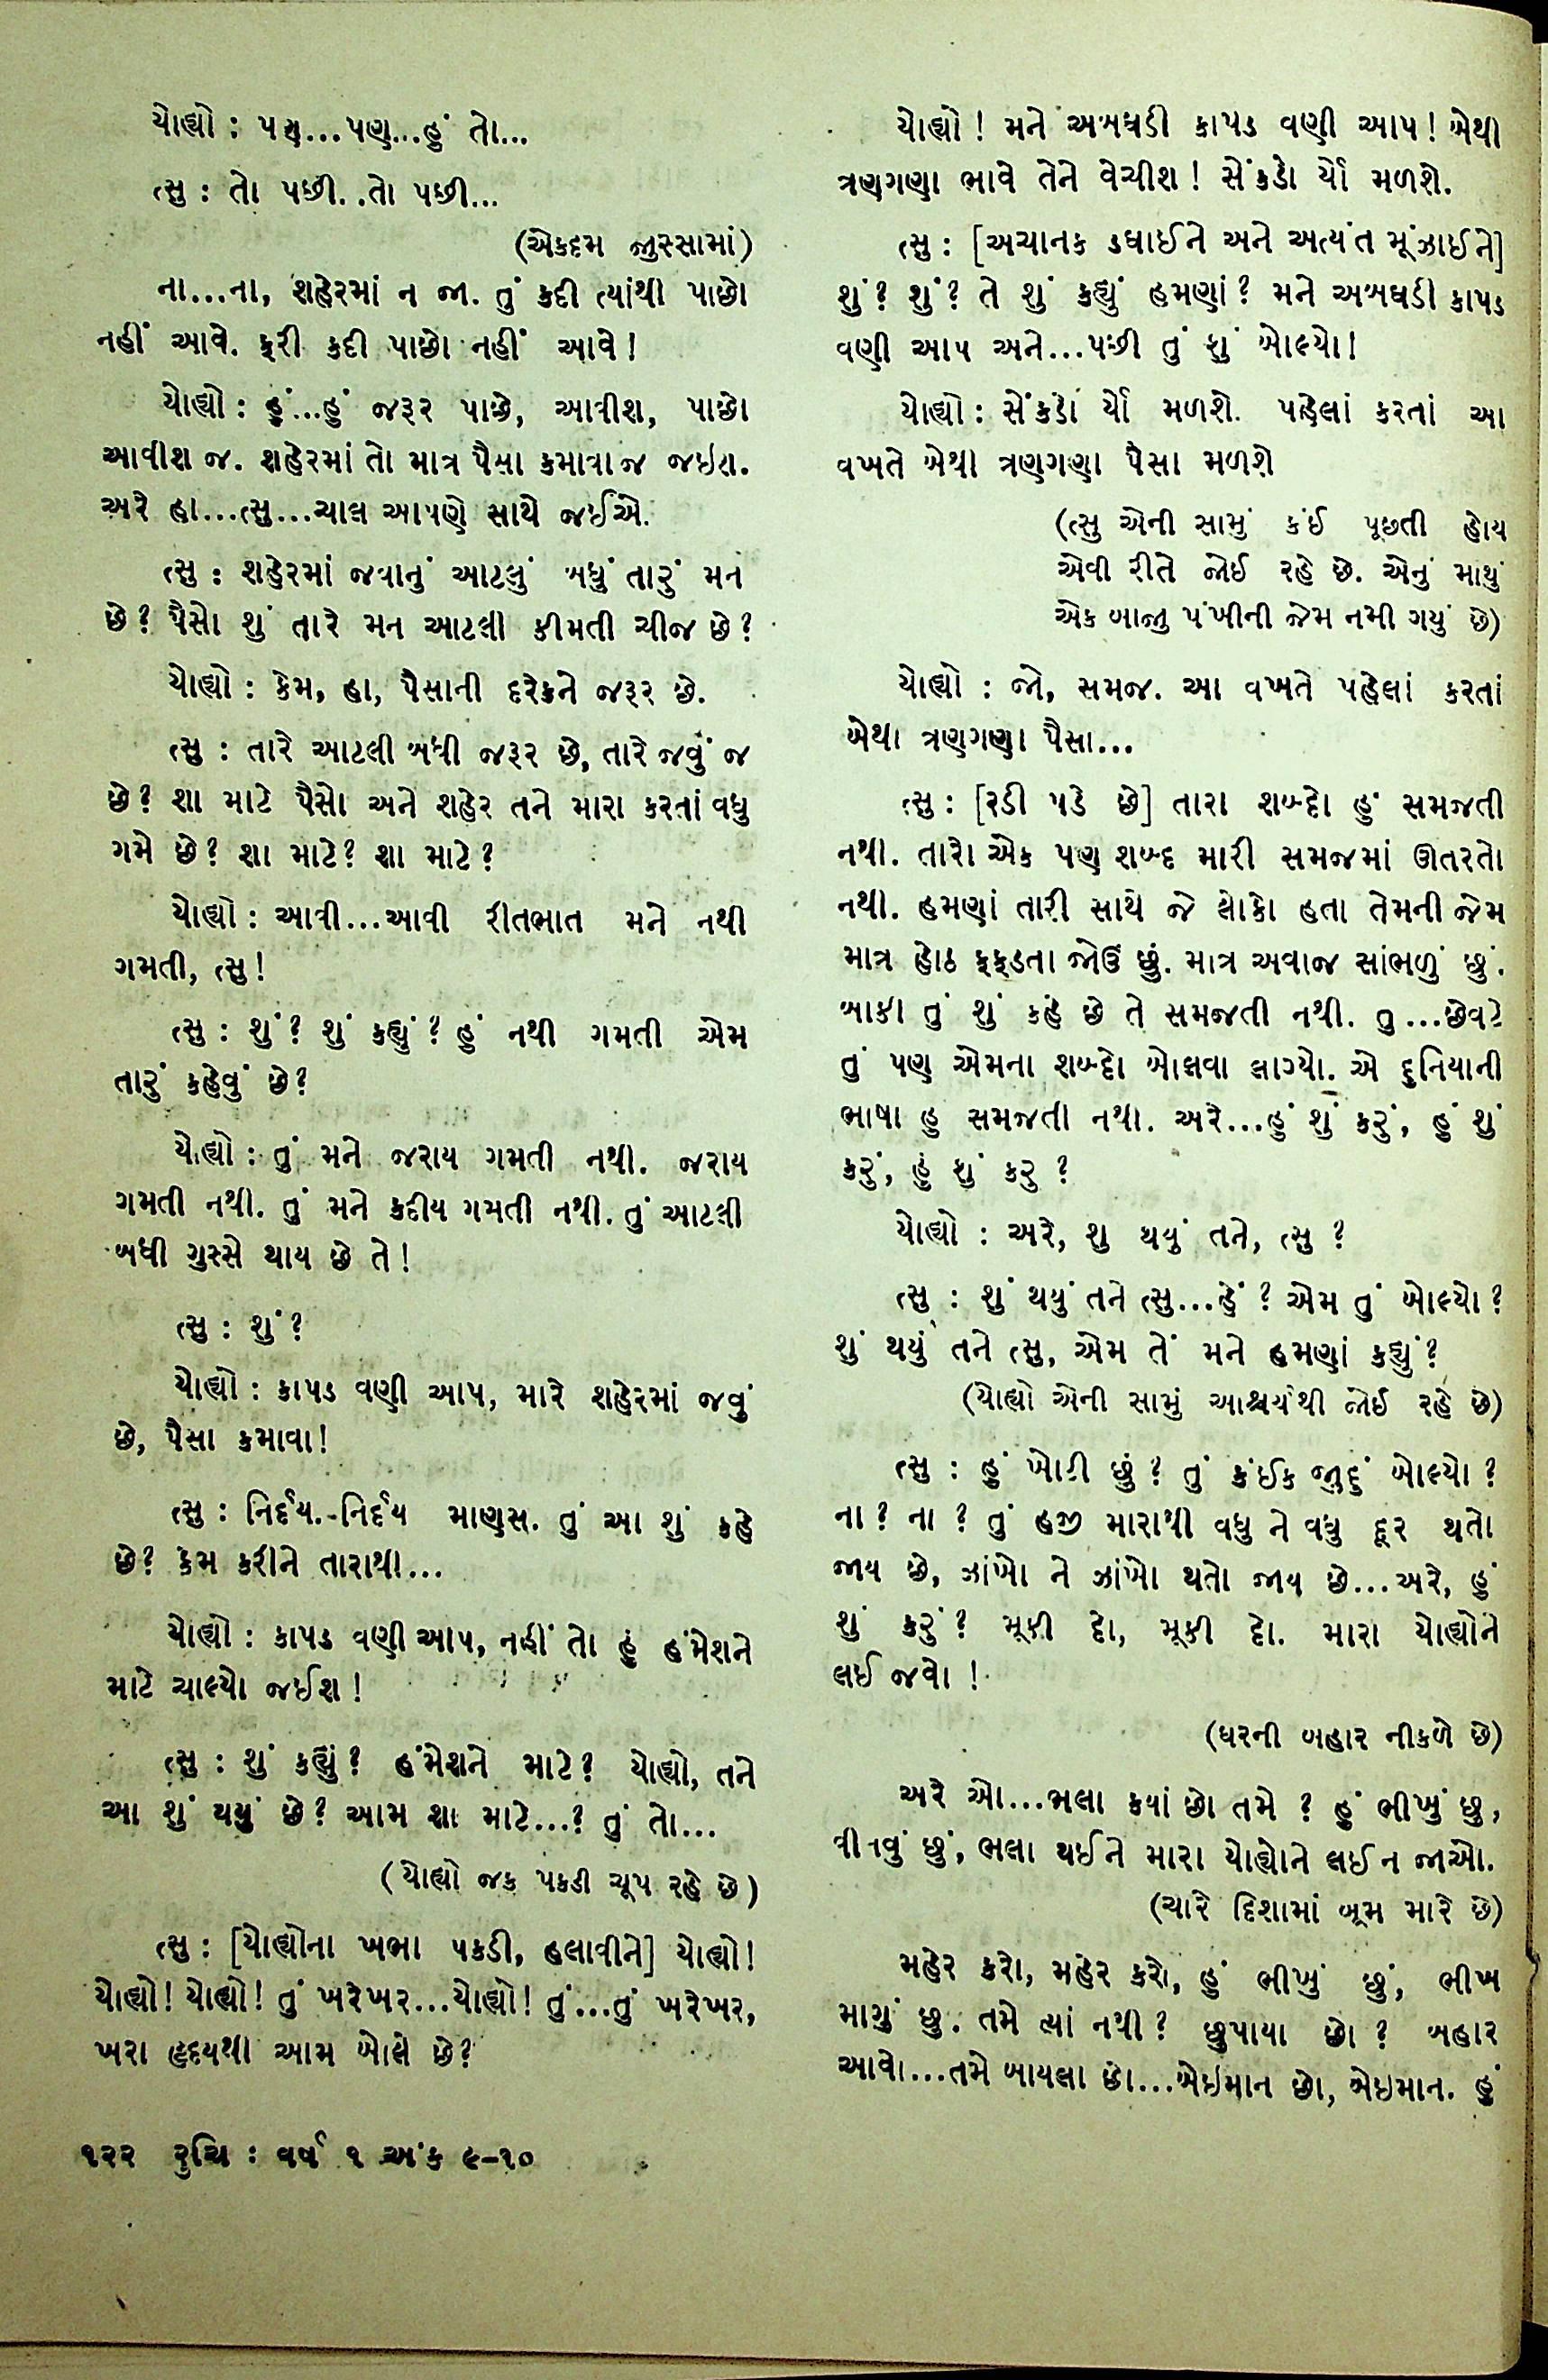 યોહ્યો : પણ...પણ...હું તો...
ત્સુ : તો પછી..તો પછી...
(એકદમ જુસ્સામાં)
ના...ના, શહેરમાં ન જા. તું કદી ત્યાંથી પાછો
નહીં આવે. ફરી કદી પાછો નહીં આવે!
યોહ્યો : હું...હું જરૂર પાછે, આવીશ, પાછો
આવીશ જ. શહેરમાં તો માત્ર પૈસા કમાવા જ જઇશ.
અરે હા...ત્સુ...ચાલ આપણે સાથે જઈએ.
ત્સુ : શહેરમાં જવાનું આટલું બધું તારું મન
છે? પૈસો શું તારે મન આટલી કીમતી ચીજ છે?
યોહ્યો : કેમ, હા, પૈસાની દરેકને જરૂર છે.
ત્સુ : તારે આટલી બધી જરૂર છે, તારે જવું જ
છે? શા માટે પૈસો અને શહેર તને મારા કરતાં વધુ
ગમે છે? શા માટે? શા માટે?
યોહ્યો : આવી...આવી રીતભાત મને નથી
ગમતી, ત્સુ!
ત્સુ : શું? શું કહ્યું? હું નથી ગમતી એમ
તારું કહેવું છે?
યોહ્યો : તું મને જરાય ગમતી નથી. જરાય
ગમતી નથી. તું મને કદીય ગમતી નથી. તું આટલી
બધી ગુસ્સે થાય છે તે!
ત્સુ : શું?
યોહ્યો : કાપડ વણી આપ, મારે શહેરમાં જવું
છે, પૈસા કમાવા!
ત્સુ : નિર્દય.-નિર્દય માણસ. તું આ શું કહે
છે? કેમ કરીને તારાથી...
યોહ્યો : કાપડ વણી આપ, નહીં તો હું હંમેશને
માટે ચાલ્યો જઈશ!
ત્સુ : શું કહ્યું? હંમેશને માટે? યોહ્યો, તને
આ શું થયું છે? આમ શા માટે...? તું તો...
(યોહ્યો જક પકડી ચૂપ રહે છે)
ત્સુ : [યોહ્યોના ખભા પકડી, હલાવીને] યોહ્યો!
યોહ્યો! યોહ્યો! તું ખરેખર...યોહ્યો! તું...તું ખરેખર,
ખરા હૃદયથી આમ બોલે છે?
૧૨૨ રુચિ : વર્ષ ૧ અંક ૯-૧૦
યોહ્યો! મને અબઘડી કાપડ વણી આપ! બેથી
ત્રણગણા ભાવે તેને વેચીશ! સેંકડો ર્યો મળશે.
ત્સુ : [અચાનક ડઘાઈને અને અત્યંત મૂંઝાઈને]
શું? શું? તે શું કહ્યું હમણાં? મને અબઘડી કાપડ
વણી આપ અને...પછી તું શું બોલ્યો!
યોહ્યો : સેંકડો ર્યો મળશે. પહેલાં કરતાં આ
વખતે બેથી ત્રણગણા પૈસા મળશે
(ત્સુ એની સામું કંઈ પૂછતી હોય
એવી રીતે જોઈ રહે છે. એનું માથું
એક બાજુ પંખીની જેમ નમી ગયું છે)
યોહ્યો : જો, સમજ. આ વખતે પહેલાં કરતાં
બેથી ત્રણગણા પૈસા...
ત્સુ : [રડી પડે છે] તારા શબ્દો હું સમજતી
નથી. તારો એક પણ શબ્દ મારી સમજમાં ઊતરતો
નથી. હમણાં તારી સાથે જે લોકો હતા તેમની જેમ
માત્ર હોઠ ફફડતા જોઉં છું. માત્ર અવાજ સાંભળું છું.
બાકી તું શું કહે છે તે સમજતી નથી. તુ...છેવટે
તું પણ એમના શબ્દો બોલવા લાગ્યો. એ દુનિયાની
ભાષા હુ સમજતી નથી. અરે...હું શું કરું, હું શું
કરું, હું શું કરુ ?
યોહ્યો : અરે, શુ થયું તને, ત્સુ ?
ત્સુ : શું થયું તને ત્સુ...હેં? એમ તું બોલ્યો?
શું થયું તને ત્સુ, એમ તેં મને હમણાં કહ્યું?
(યોહ્યો એની સામું આશ્ચર્યથી જોઈ રહે છે)
ત્સુ : હું ખોટી છું? તું કંઈક જુદું બોલ્યો?
ના? ના ? તું હજી મારાથી વધુ ને વધુ દૂર થતો
જાય છે, ઝાંખો ને ઝાંખો થતો જાય છે...અરે, હું
શું કરું? મૂકી દો, મૂકી દો. મારા યોહ્યોને
લઈ જવો !
(ઘરની બહાર નીકળે છે)
અરે ઓ...ભલા ક્યાં છો તમે ? હું ભીખું છુ,
વીનવું છું, ભલા થઈને મારા યોહ્યોને લઈ ન જાઓ.
(ચારે દિશામાં બૂમ મારે છે)
મહેર કરો, મહેર કરો, હું ભીખું છું, ભીખ
માગું છુ. તમે ત્યાં નથી? છુપાયા છો? બહાર
આવો...તમે બાયલા છો...બેઇમાન છો, બેઇમાન. હું